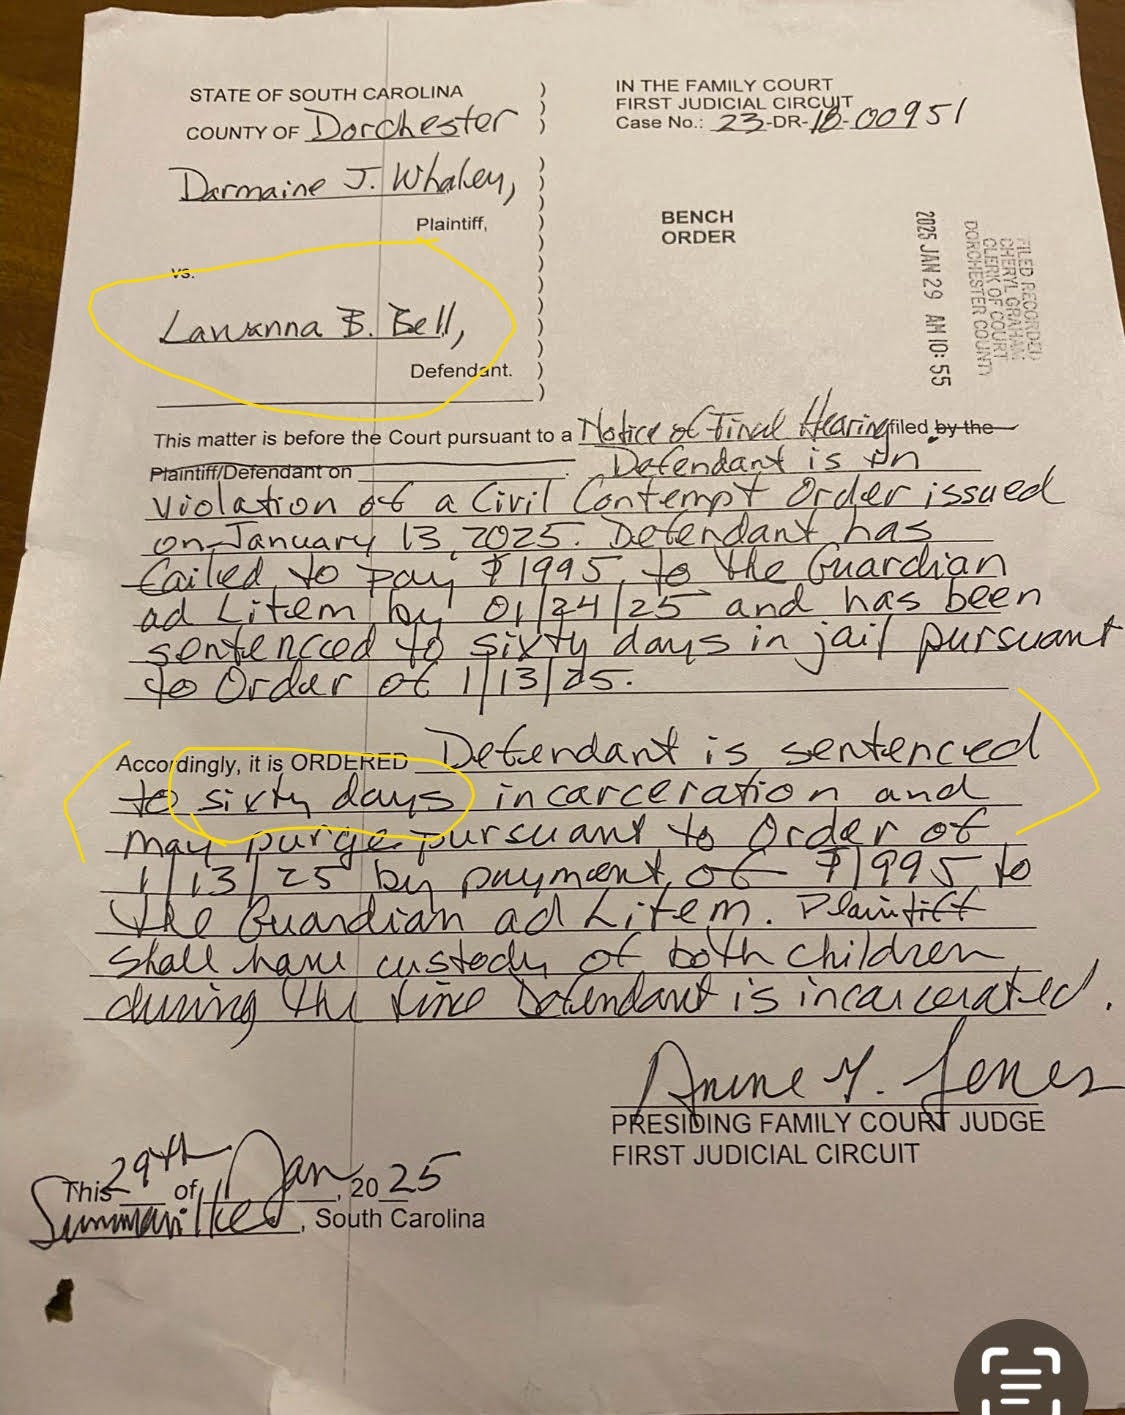 STATE OF SOUTH CAROLINA
COUNTY OF Dorchester
Darmaine J. Whaley,
Plaintiff,
vs.
Lawanna B. Bell,
Defendant.
IN THE FAMILY COURT
FIRST JUDICIAL CIRCUIT
Case No.: 23-DR-18-00951
BENCH
ORDER
FILED RECORDED
CHERYL GRAHAM
CLERK OF COURT
DORCHESTER COUNTY
2025 JAN 29 AM 10:55
This matter is before the Court pursuant to a Notice of Final Hearing filed by the
Plaintiff/Defendant on . Defendant is in
violation of a Civil Contempt Order issued
on January 13, 2025. Defendant has
failed to pay $1995 to the Guardian
ad Litem by 01/24/25 and has been
sentenced to sixty days in jail pursuant
to Order of 1/13/25.
Accordingly, it is ORDERED Defendant is sentenced
to sixty days incarceration and
may purge pursuant to Order of
1/13/25 by payment of $1995 to
the Guardian ad Litem. Plaintiff
shall have custody of both children
during the time Defendant is incarcerated.
PRESIDING FAMILY COURT JUDGE
FIRST JUDICIAL CIRCUIT
This 29th of Jan, 2025
Summerville, South Carolina